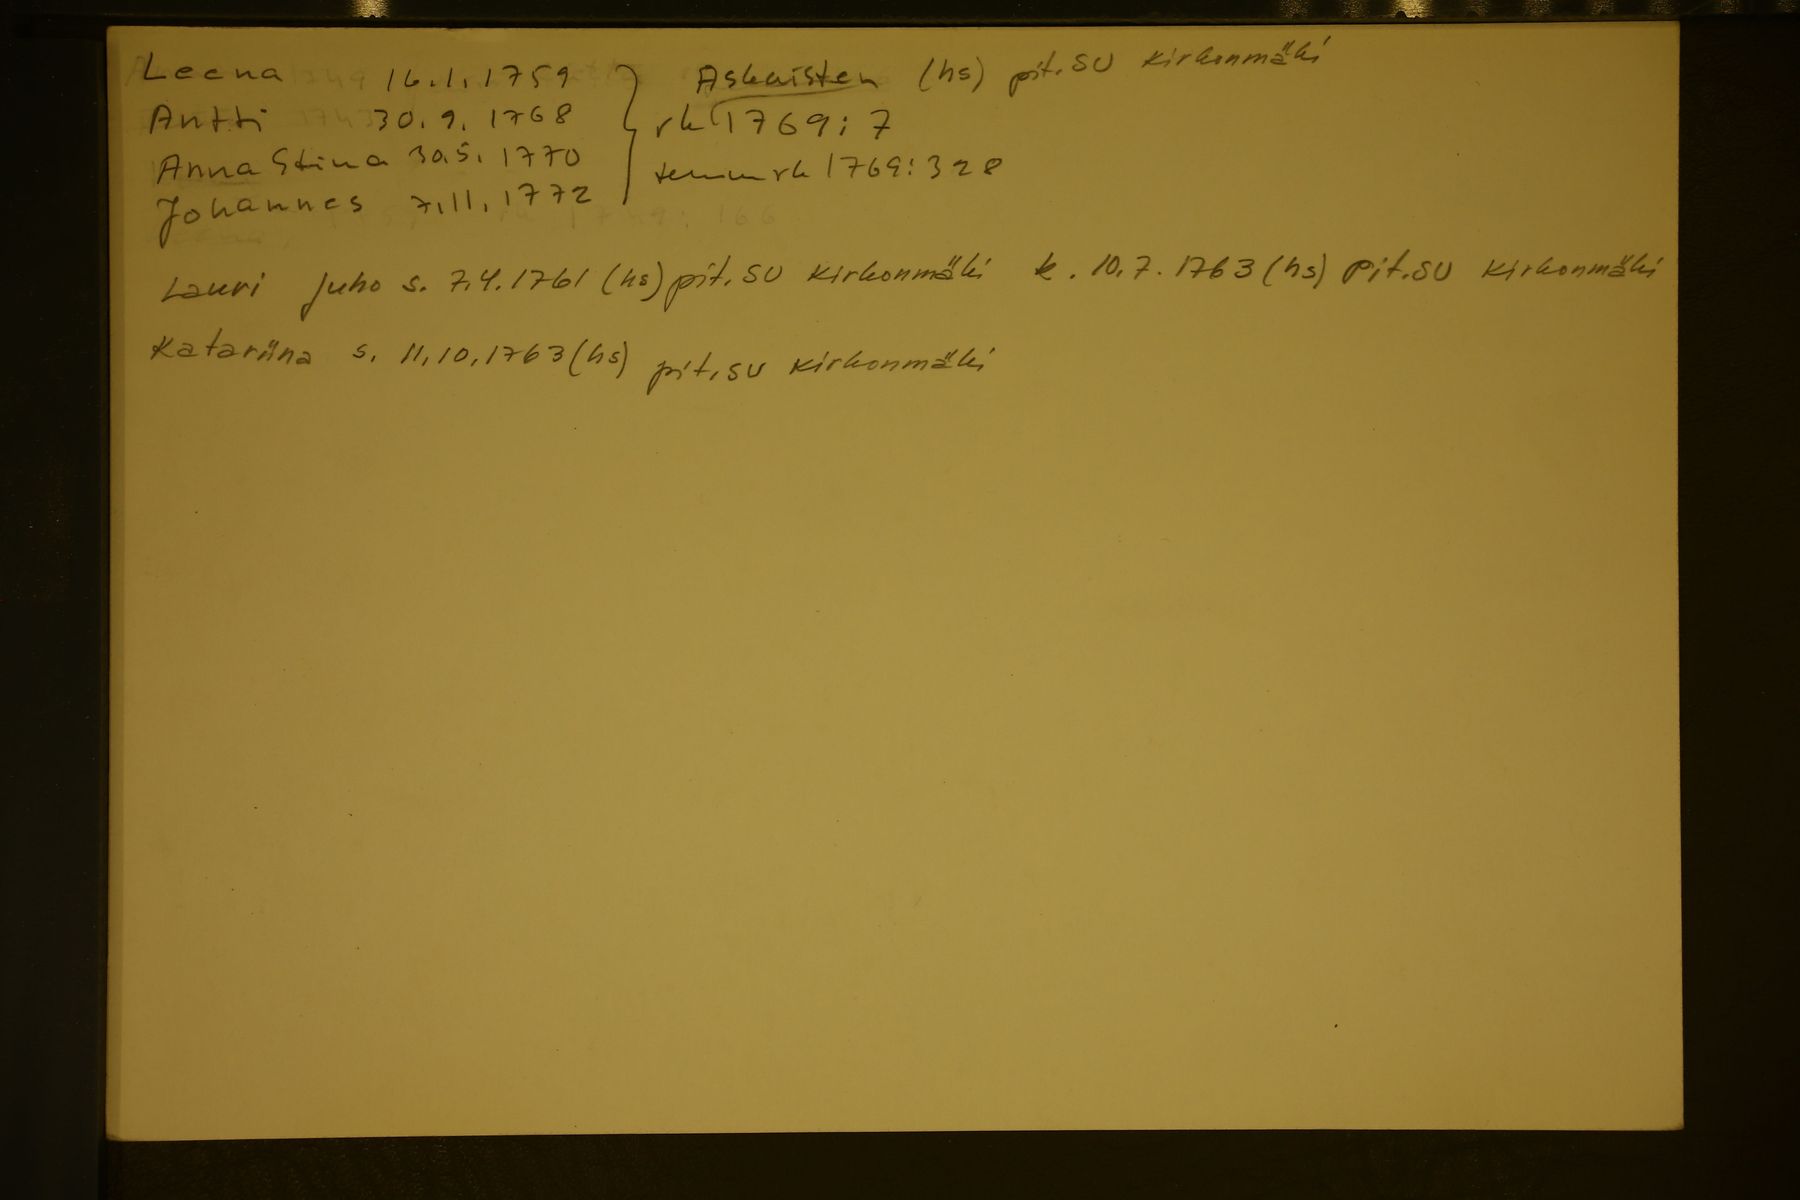 Leena 16.1.1759 } Askaisten (hs) pit. SU Kirkonmäki
Antti 30.9.1768 rk 1769:7
Anna Stina 30.5.1770 rk 1769:328
Johannes 7.11.1772
Lauri Juho s. 7.4.1761 (hs) pit. SU Kirkonmäki k. 10.7.1763 (hs) pit. SU Kirkonmäki
Katariina s. 11.10.1763 (hs) pit. SU Kirkonmäki